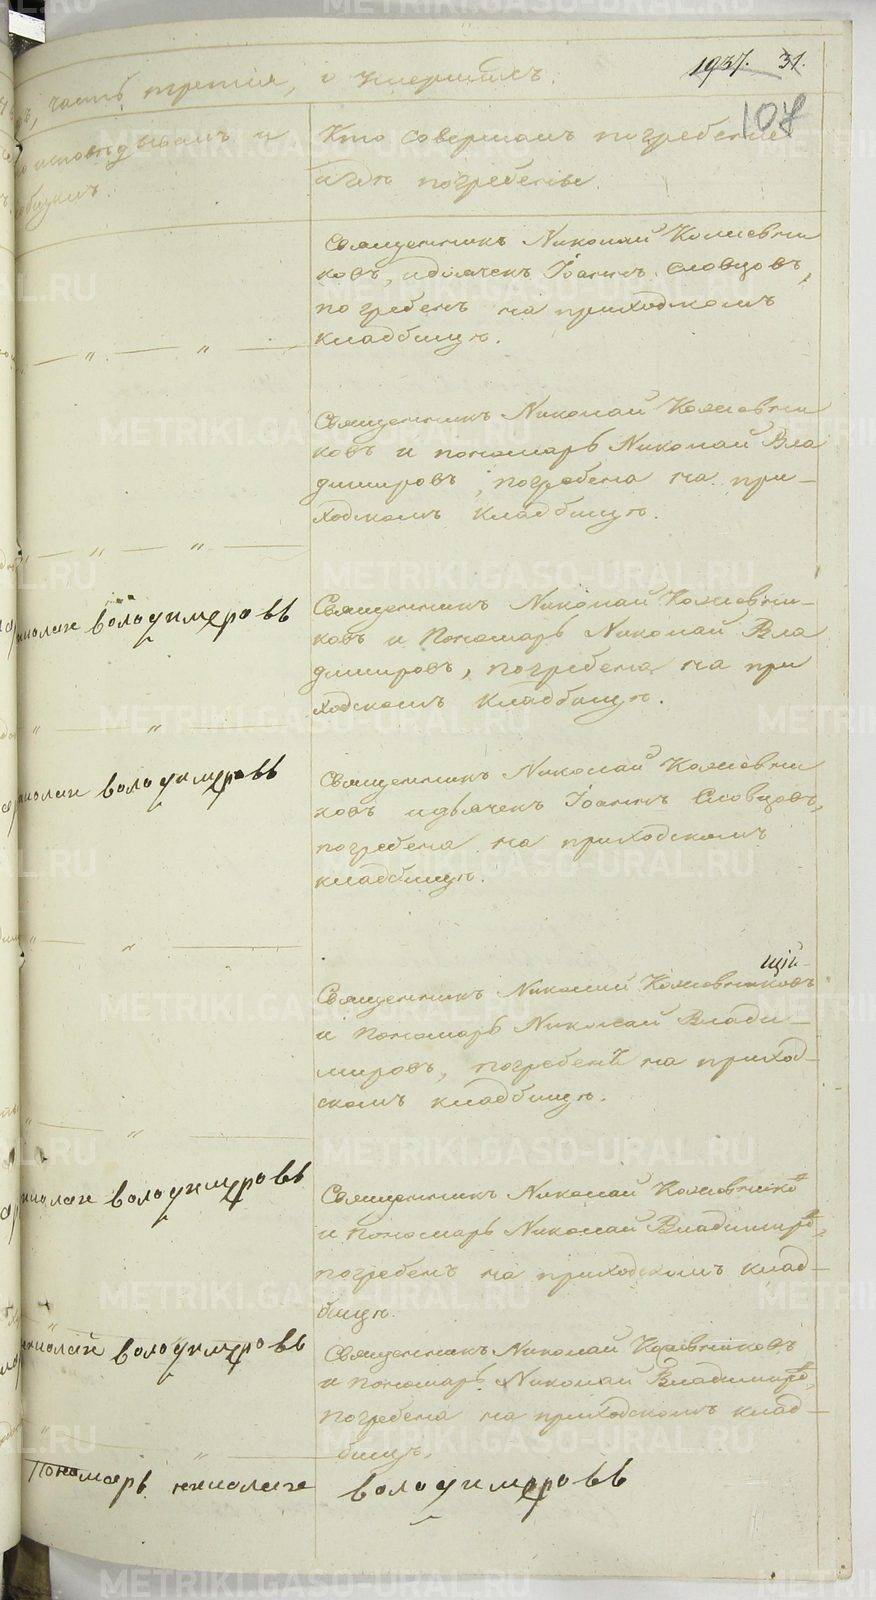 1937. 31.
107
часть третія, о умершихъ.
исповѣдывалъ и
Кто совершалъ погребеніе
и гдѣ погребены.
Священникъ Николай Кожевни
ковъ, и дьячекъ Іоаннъ Словцовъ,
погребенъ на приходскомъ
кладбищѣ.
Священникъ Николай Кожевни
ковъ и пономарь Николай Вла
димировъ, погребена на при-
ходскомъ кладбищѣ.
николаи володимеровъ
Священникъ Николай Кожевни-
ковъ и Пономарь Николай Вла
димировъ, погребена на при
ходскомъ кладбищѣ.
николаи володимеровъ
Священникъ Николай Кожевни
ковъ и дьячекъ Іоаннъ Словцовъ,
погребена на приходскомъ
кладбищѣ.
щій
Священникъ Николай Кожевниковъ
и Пономарь Николай Влади-
мировъ, погребенъ на приход-
скомъ кладбищѣ.
николаи володимеровъ
Священникъ Николай Кожевниковъ
и Пономарь Николай Владимировъ,
погребенъ на приходскомъ клад-
бищѣ.
николай володимеровъ
Священникъ Николай Кожевниковъ
и пономарь Николай Владимировъ,
погребена на приходскомъ клад-
бищѣ.
Пономарь николаи володимеровъ
METRIKI.GASO-URAL.RU